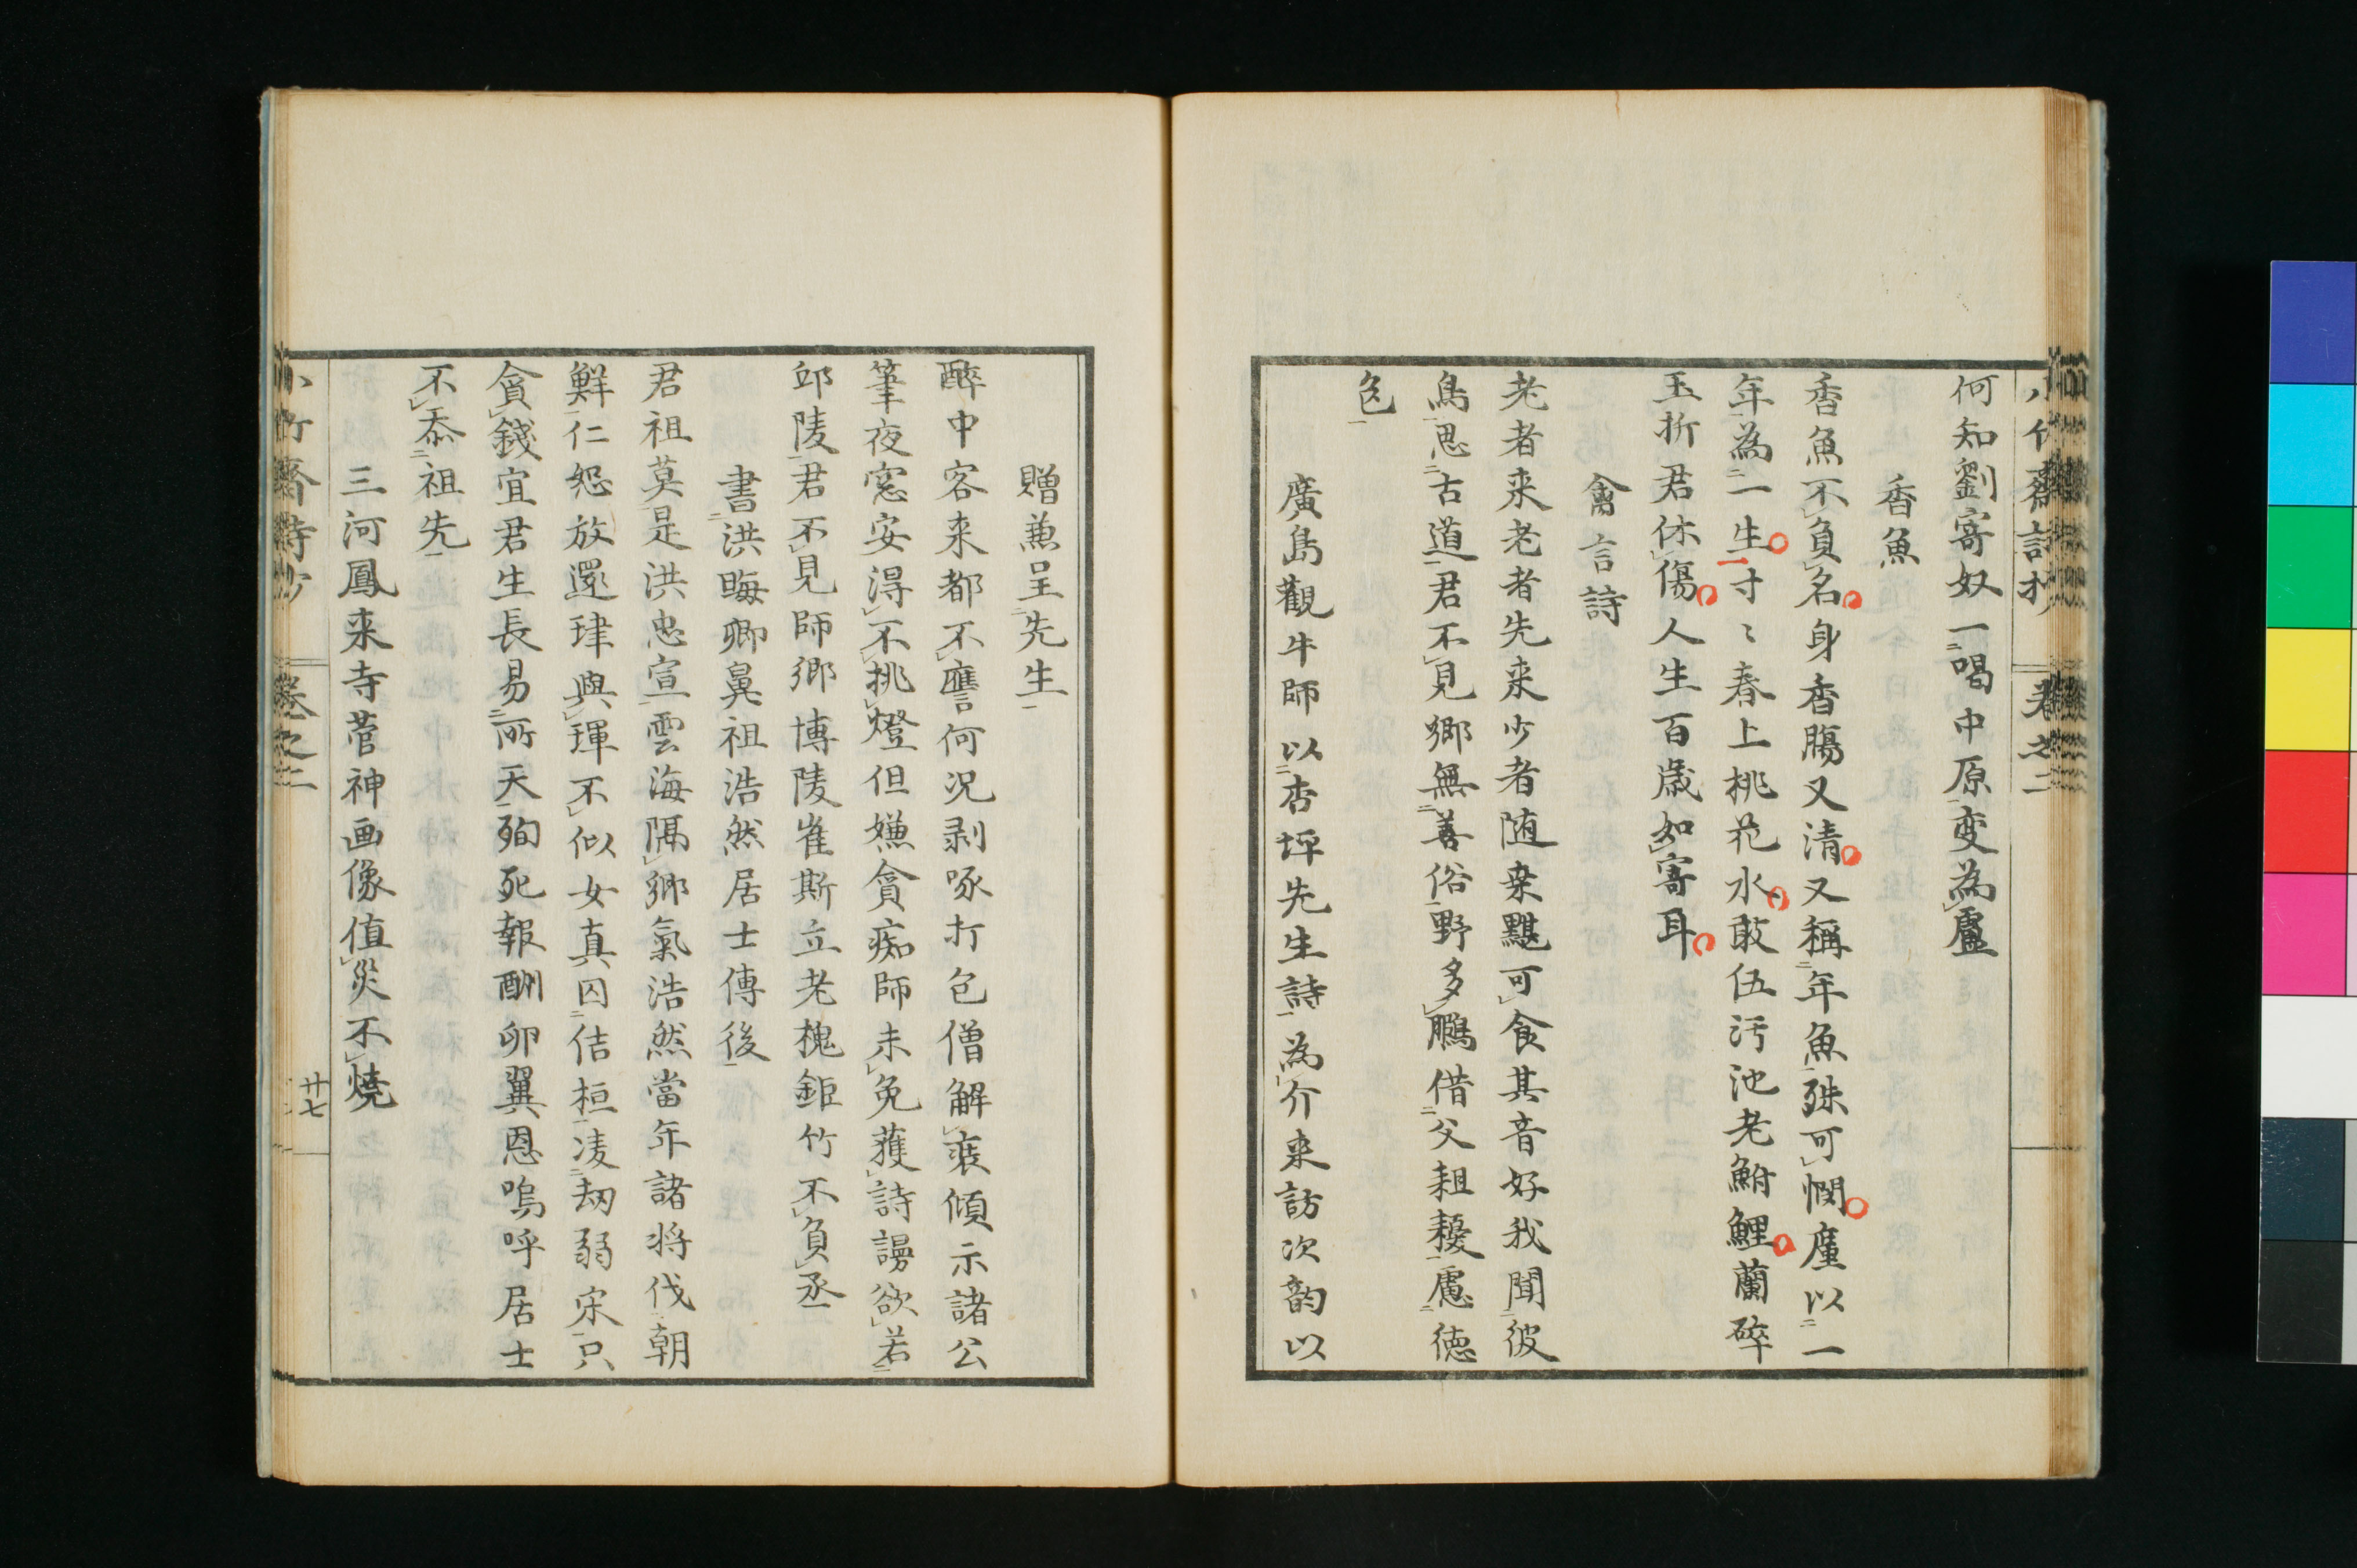 何知劉寄奴一喝中原変為盧
香魚
香魚不負名身香腸又清又稱年魚殊可憫廑以一
年為一生寸〻春上桃花水敢伍汚池老鮒鯉蘭碎
玉折君休傷人生百歳如寄耳
禽言詩
老者来老者先来少者随桒黮可食其音好我聞彼
鳥思古道君不見郷無善俗野多鵩借父耝耰慮徳
色
廣島觀牛師以杏坪先生詩為介来訪次韵以
贈兼呈先生
醉中客来都不譍何况剥啄打包僧解袠傾示諸公
筆夜窓安得不挑燈但嫌貪痴師未免蒦詩謾欲若
邱陵君不見師郷博陵崔斯立老槐鉅竹不負丞
書洪晦卿鼻祖浩然居士傳後
君祖莫是洪忠宣雲海隔郷氣浩然當年諸将伐朝
鮮仁怨放還珒與琿不似女真囚佶桓凌刼弱宋只
貪錢宜君生長易所天殉死報酬卵翼恩嗚呼居士
不忝祖先
三河鳳来寺菅神画像値災不燒
小竹齋詩抄 卷之二 廿七